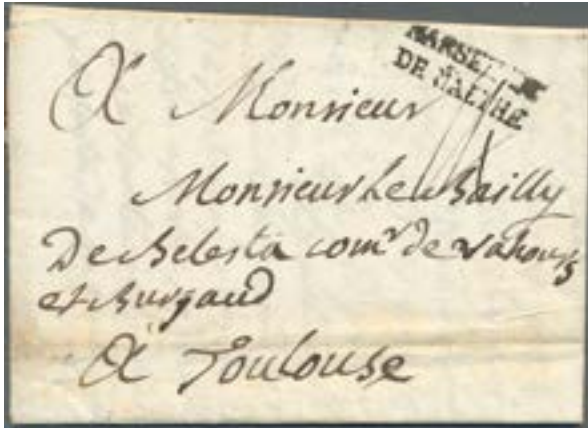 MARSEILLE
DE MALTHE
A Monsieur
Monsieur Le Bailly
De Belesta comr de
et Burgaud
A Toulouse